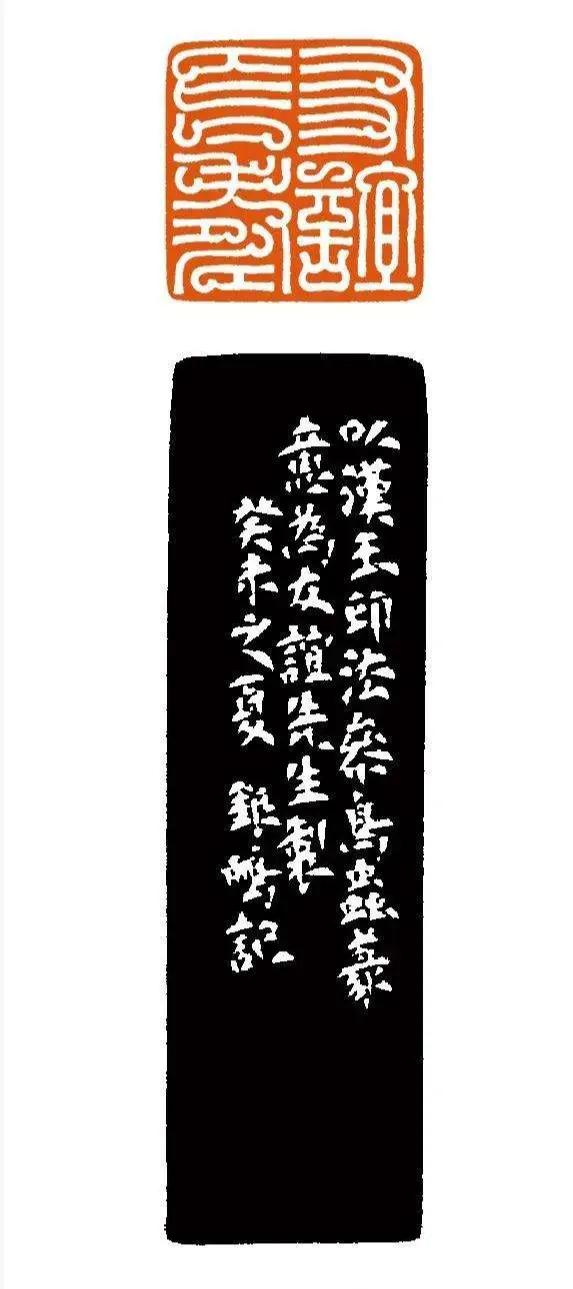 友誼
以漢玉印法參鳥蟲篆
意為友誼先生製
癸未之夏 銀記